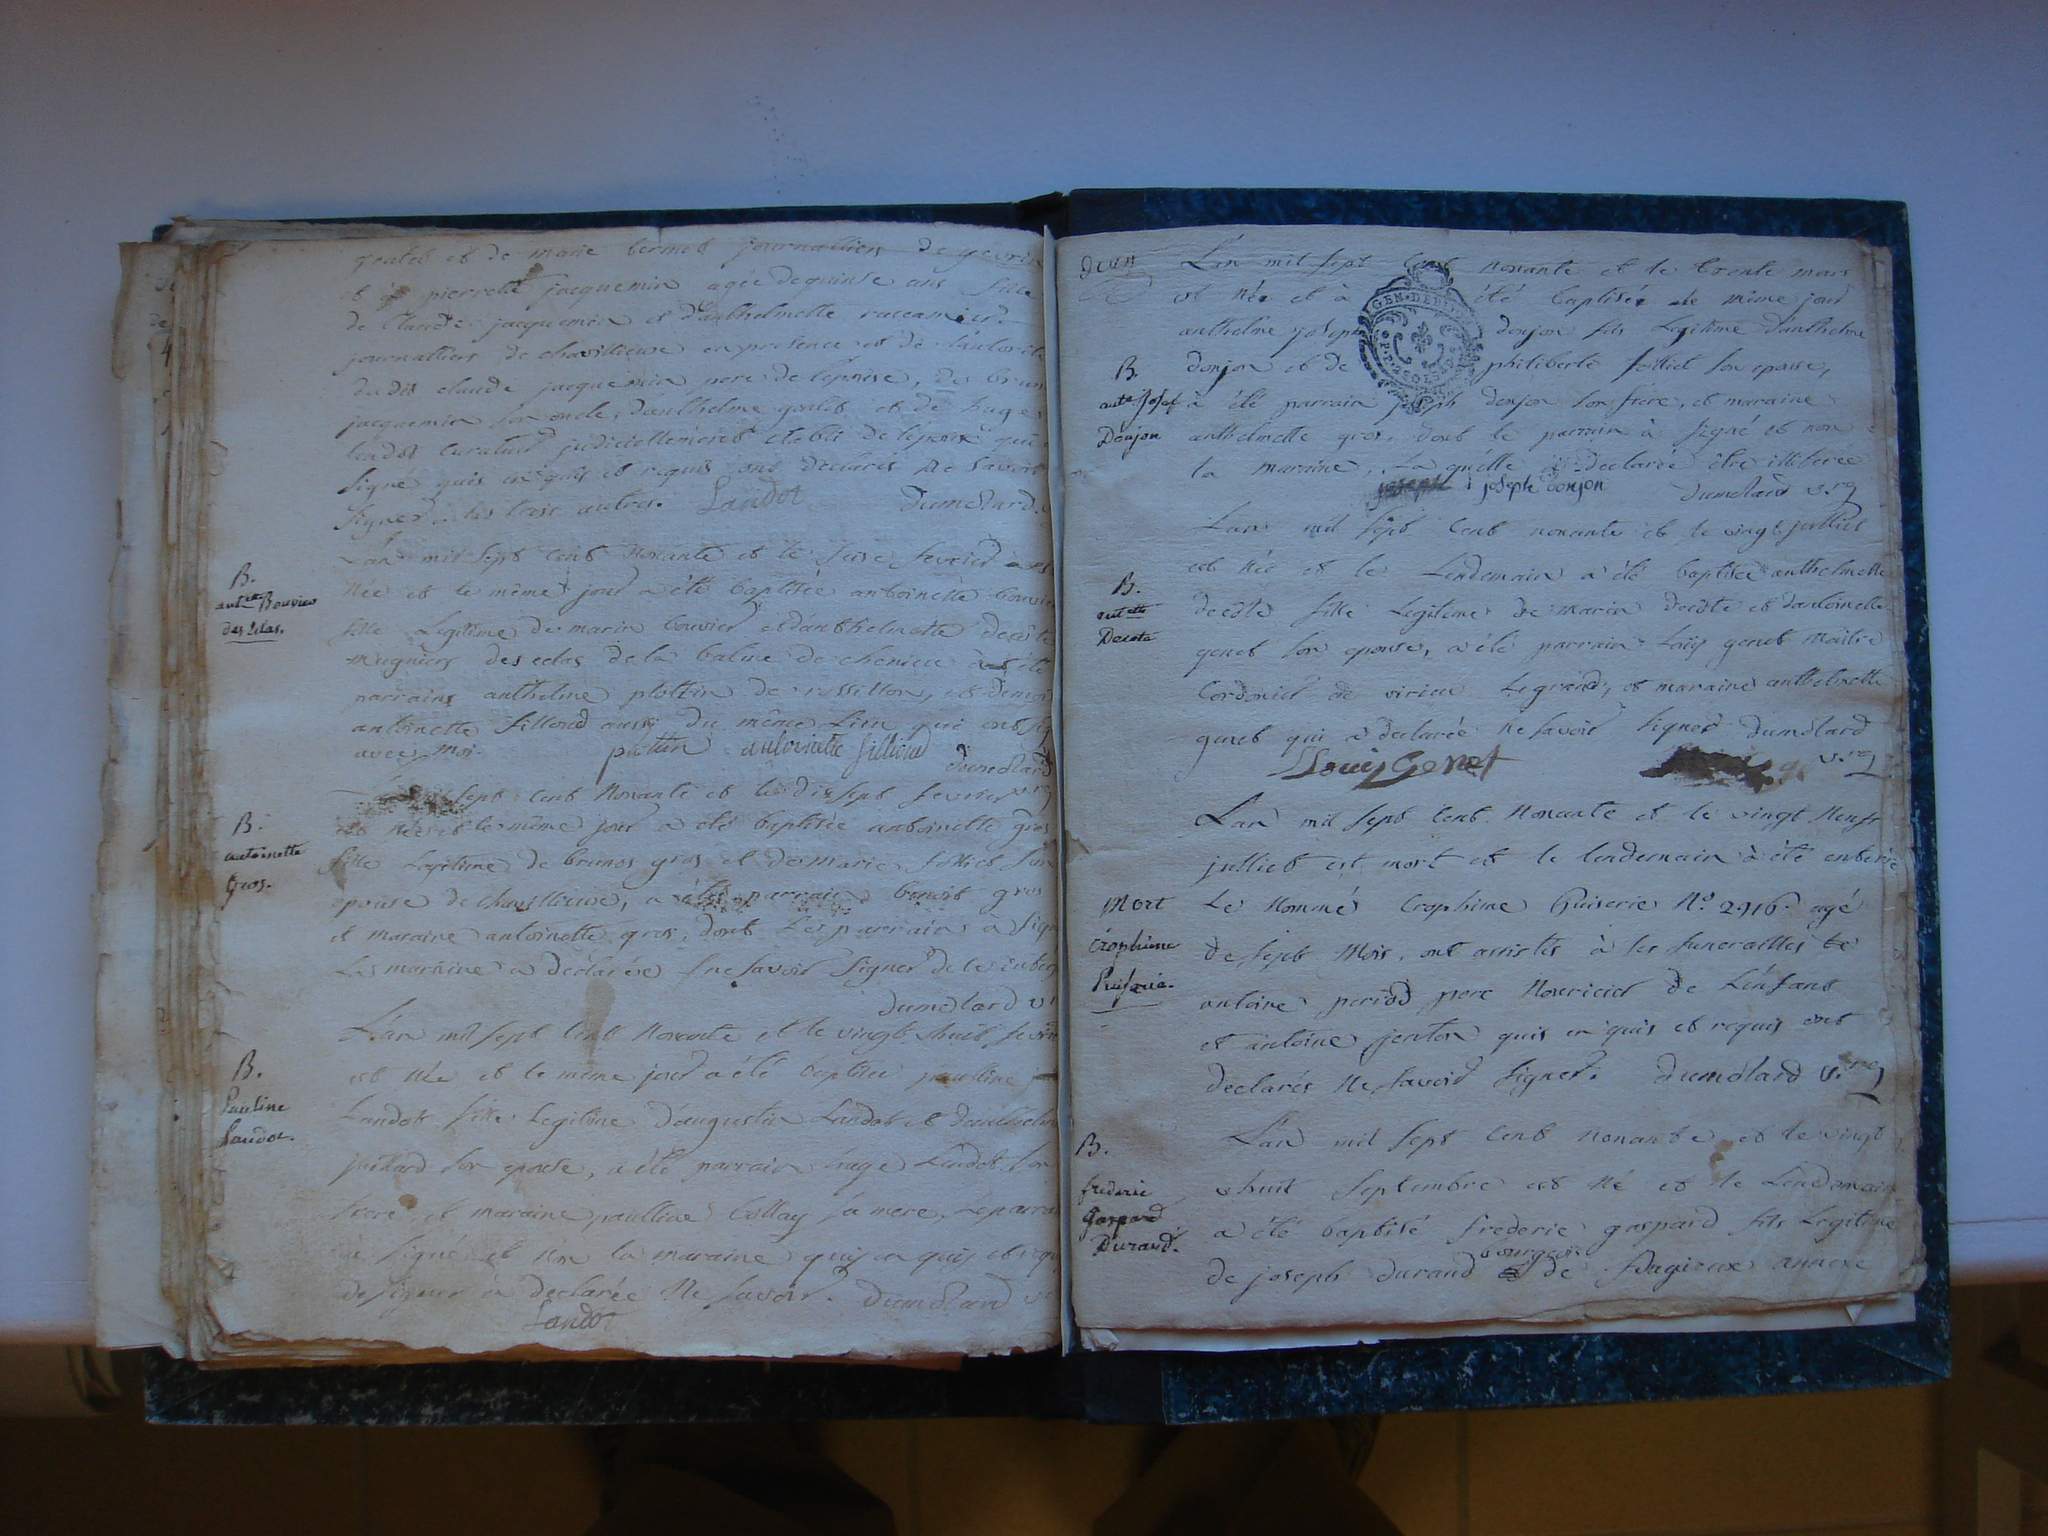 et de marie journalliers de
et pierrette jacquemin agée de quinse ans fille
de Claude jacquemin et d'anthelmette
journalliers de chavillieux en presence et de l'autorité
dudit claude jacquemin pere de l'épouse, de brun
jacquemin son oncle, d'anthelme et de huge
Landot curateur judiciellement etabli de l'époux qui
signé quis en quis et requis ont declarés ne savoir
signer les trois autres. Landot Dumolard
L'an mil sept cent nonante et le seise fevrier est
B.
antte Bouvier
des eclas.
née et le même jour a été baptisée antoinette bouvier
fille Legitime de marin bouvier et d'anthelmette decôte
mugniers des eclas de la balme de chenieu a été
parrains anthelme plottin de rossillon, et demois
antoinette fillioud aussi du même Lieu qui ont sig
avec moi. plottin antoinette fillioud Dumolard
sept cent Nonante et le dis sept fevrier
B.
antoinette
Gros.
est née et le même jour a été baptisée antoinette gros
fille Legitime de brunos gros et de marie folliet son
epouse de chavillieux, a été parrain benoit gros
et maraine antoinette gros, dont le parrain a sign
La maraine a declarée ne savoir signer de ce
dumolard
L'an mil sept cent Nonante et le vingt huit fevrier
B.
Pauline
Landot.
est née et le même jour a été baptisée paulline
Landot fille Legitime d'augustin Landot et d'anthelm
juillard son epouse, a été parrain huge Landot son
frere, et maraine paulline Collay sa mere, Le parra
a signé et non la maraine quis en quis et requ
de signer a declarée Ne savoir. Dumolard
Landot
L'an mil sept cent Nonante et le trente mars
est né et à été baptisé le même jour
GEN. DE
anthelme joseph donjon fils Legitime d'anthelme
B.
ante Josef
Donjon
donjon et de philiberte folliet son epouse,
à été parrain joseph donjon son frere, et maraine
anthelmette gros, dont le parrain à signé et non
la maraine, La quelle à declarée être illiterée
joseph donjon Dumolard
L'an mil sept cent nonante et le vingt julliet
B.
antette
Decote
est née et le Lendemain a été baptisée anthelmette
decôte fille Legitime de marin decôte et d'antoinette
genet son epouse, a été parrain Loüis genet maître
Cordonier de virieu Legrand, et maraine anthelmette
genet qui a declarée ne savoir signer dumolard
Louis Genet
L'an mil sept cent Nonante et le vingt Neuf
julliet est mort et le lendemain à été enterré
Mort
trophime
Puiserie.
Le Nommé trophime Puiserie N.° 2916. agé
de sept mois, ont assistés à ses funerailles
antoine pere Nouricier de L'enfant
et antoine quis en quis et requis ont
declarés Ne savoir signer. Dumolard
L'an mil sept cent nonante et le vingt
B.
frederic
Gaspard
Durand.
huit septembre est Né et le Lendemain
a été baptisé frederic gaspard fils Legitime
de joseph durand bourgeois de Pugieux annexe